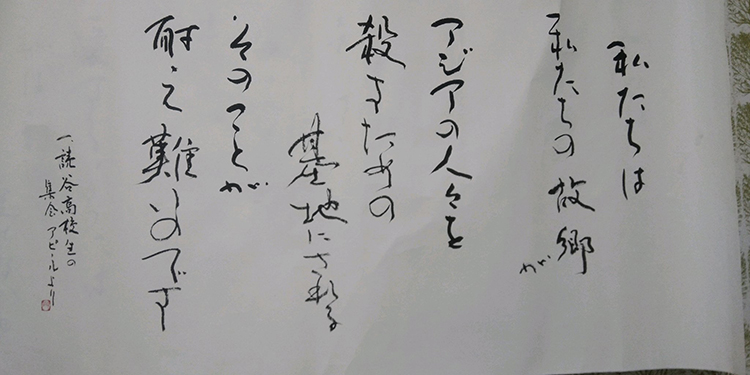 私たちは
私たちの故郷が
アジアの人々を
殺すための
基地にされる
そのことが
耐え難いのです
一読谷高校生の
集会アピールより